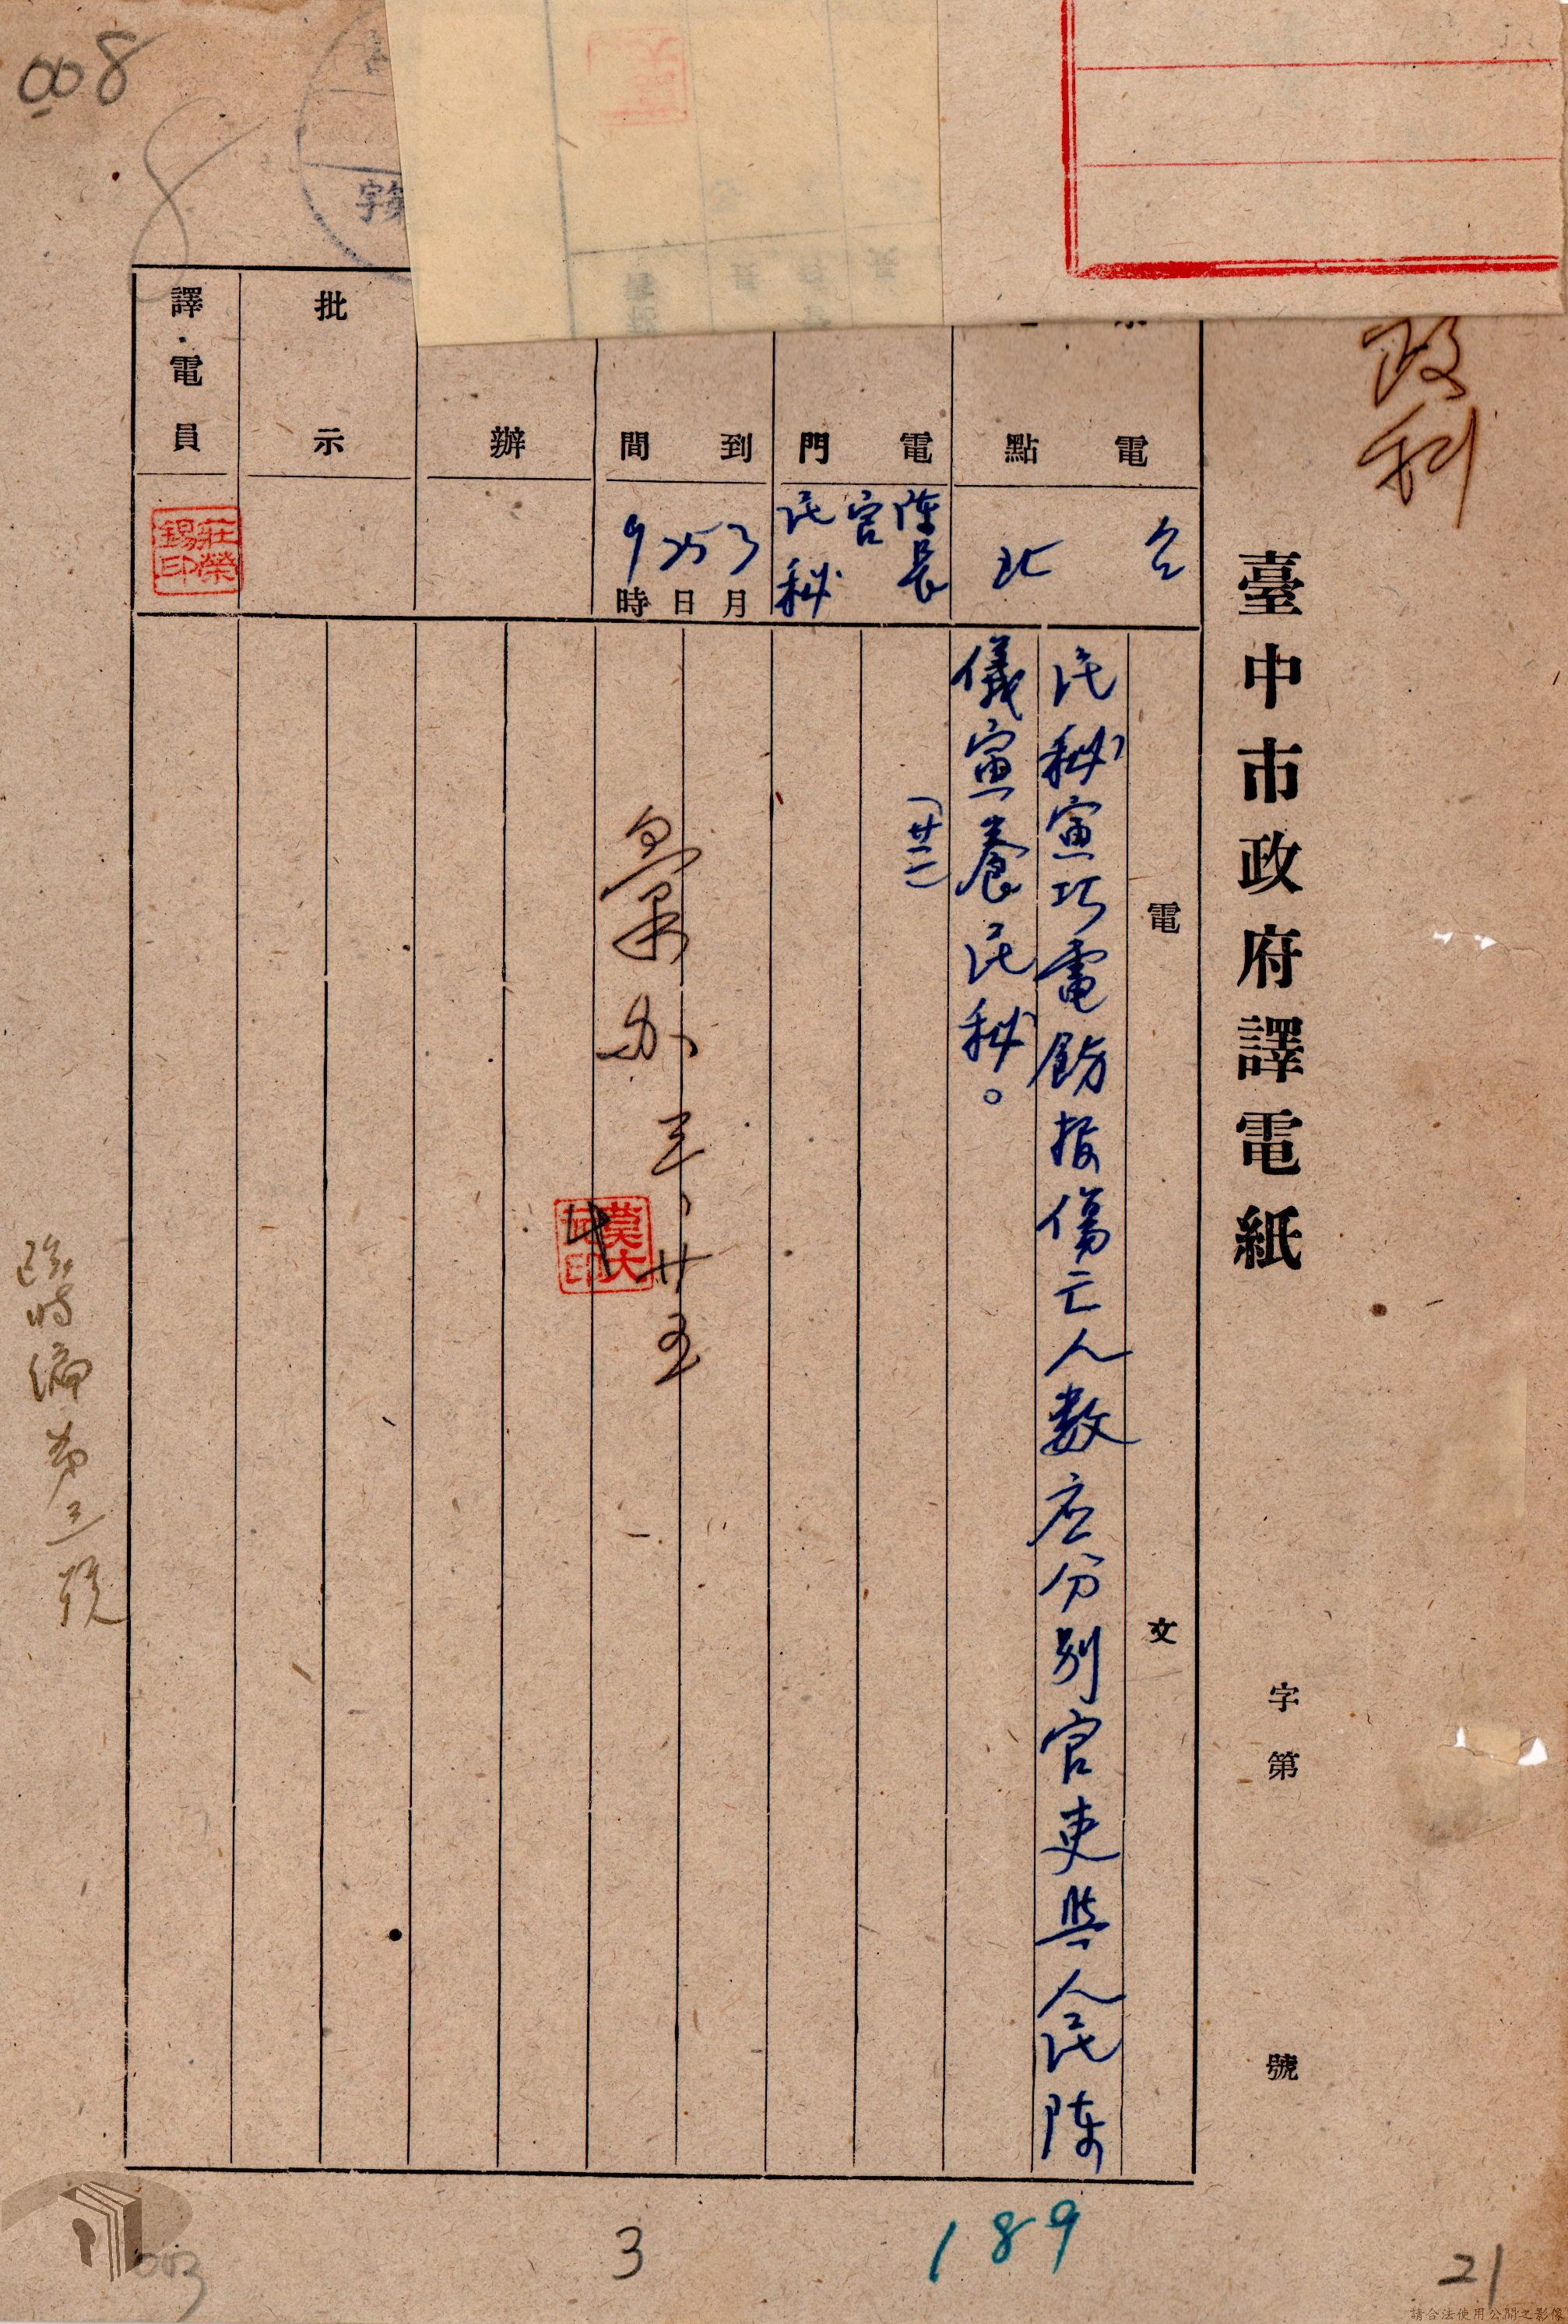 008
8
字第
政
科
臺中市政府譯電紙
字第 號
電點
台北
電門
陳長官
民秘
到間
3月25日9時
辦
批示
譯電員
莊榮錫印
電文
民秘寅巧電飭报傷亡人数应分别官吏與人民陈
儀寅養民秘。
(廿二)
办 三、廿五
莫大
印
臨時編第三號
003
3
189
21
請合法使用公開之影像